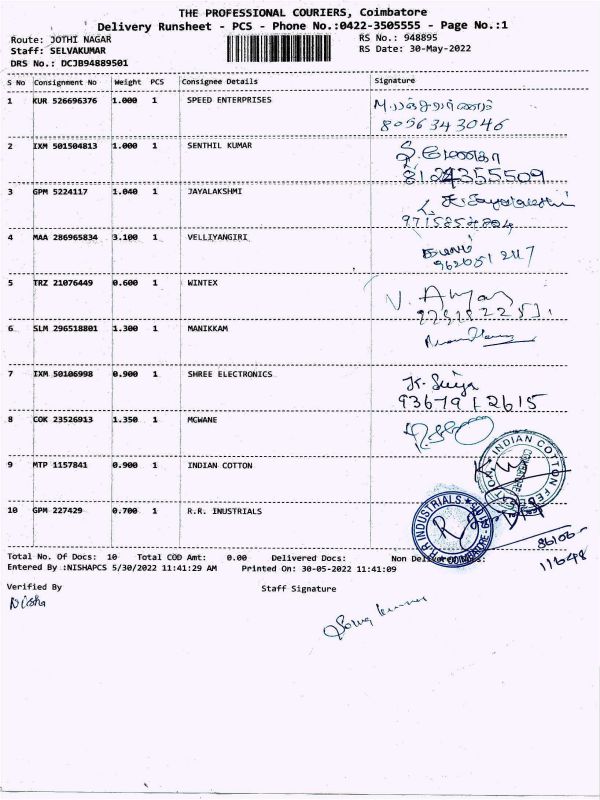 THE PROFESSIONAL COURIERS, Coimbatore
Delivery Runsheet - PCS - Phone No.:0422-3505555 - Page No.:1
Route: JOTHI NAGAR RS No.: 948895
Staff: SELVAKUMAR RS Date: 30-May-2022
DRS No.: DCJB94889501
S No Consignment No Weight PCS Consignee Details Signature
1 KUR 526696376 1.000 1 SPEED ENTERPRISES
8056343046
2 IXM 501504813 1.000 1 SENTHIL KUMAR
8124355509
3 GPM 5224117 1.040 1 JAYALAKSHMI
4 MAA 286965834 3.100 1 VELLIYANGIRI
5 TRZ 21076449 0.600 1 WINTEX
6 SLM 296518801 1.300 1 MANIKKAM
7 IXM 50106998 0.900 1 SHREE ELECTRONICS
93679 12615
8 COK 23526913 1.350 1 MCWANE
9 MTP 1157841 0.900 1 INDIAN COTTON
INDIAN COTTON
COIMBATORE
10 GPM 227429 0.700 1 R.R. INUSTRIALS
R.R INDUSTRIALS
COIMBATORE
Total No. Of Docs: 10 Total COD Amt: 0.00 Delivered Docs: Non
Entered By :NISHAPCS 5/30/2022 11:41:29 AM Printed On: 30-05-2022 11:41:09
Verified By Staff Signature
Nisha